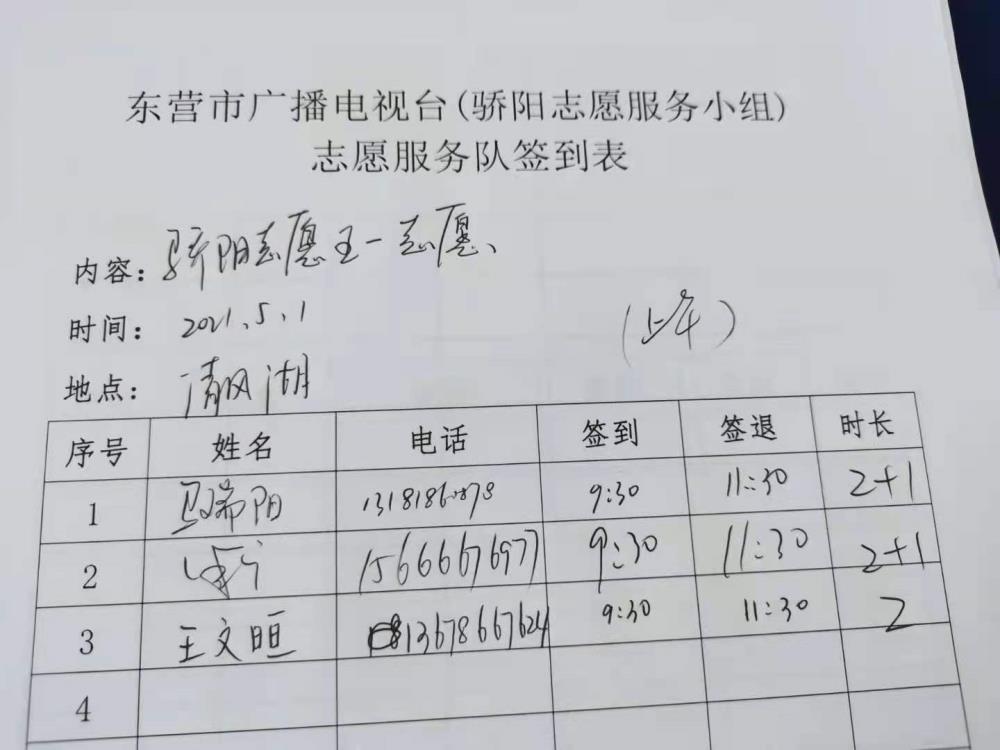 东营市广播电视台(骄阳志愿服务小组)
志愿服务队签到表
内容: 骄阳志愿五一志愿、
时间: 2021.5.1 (上午)
地点: 清风湖
序号 姓名 电话 签到 签退 时长
1 马瑞阳 9:30 11:30 2+1
2 15666676977 9:30 11:30 2+1
3 王文晅 13678667624 9:30 11:30 2
4